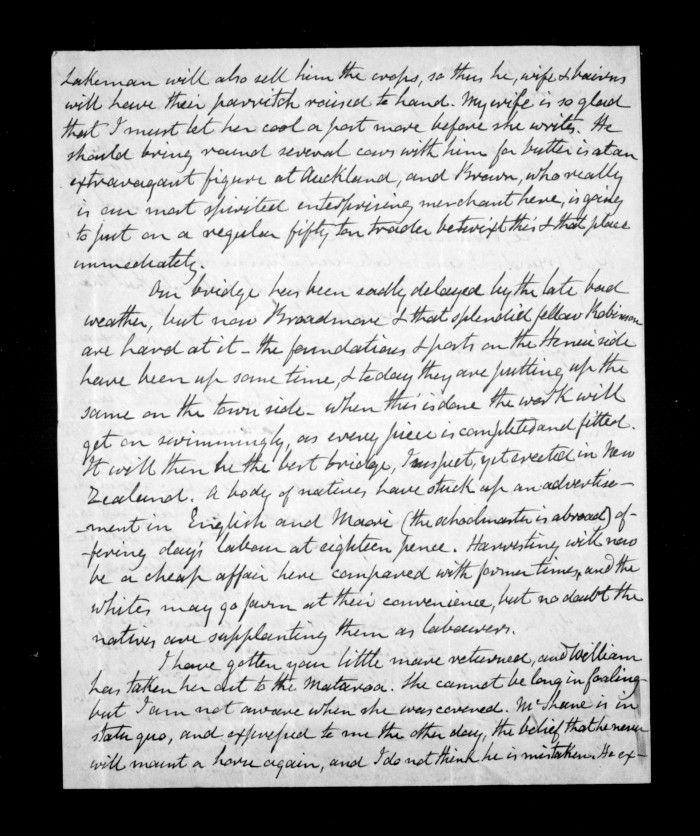 Lakeman will also sell him the crops, so thus he, wife & bairns
will have their parritch raised to hand. My wife is so glad
that I must let her cool a part more before she writes. He
should bring round several cows with him for butter is at an
extravagant figure at Auckland, and Brown, who really
is our most spirited enterprising merchant here, is going
to put on a regular fifty ton trader betwixt this & that place
immediately.
Our bridge has been sadly delayed by the late bad
weather, but now Broadmore & that splendid fellow Robinson
are hard at it - the foundations & parts on the Henui side
have been up some time, & today they are putting up the
same on the town side - when this is done the work will
get on swimmingly, as every piece is completed and fitted.
It will then be the best bridge, I suspect, yet erected in New
Zealand. A body of natives have stuck up an advertise-
-ment in English and Maori (the schoolmaster is abroad) of-
-fering day's labour at eighteen pence. Harvesting will now
be a cheap affair here compared with former times, and the
whites may go farm at their convenience, but no doubt the
natives are supplanting them as labourers.
I have gotten your little mare returned, and William
has taken her out to the Mataraoa. She cannot be long in foaling
but I am not aware when she was covered. McShane is in
statu quo, and expressed to me the other day, the belief that he never
will mount a horse again, and I do not think he is mistaken. He ex-